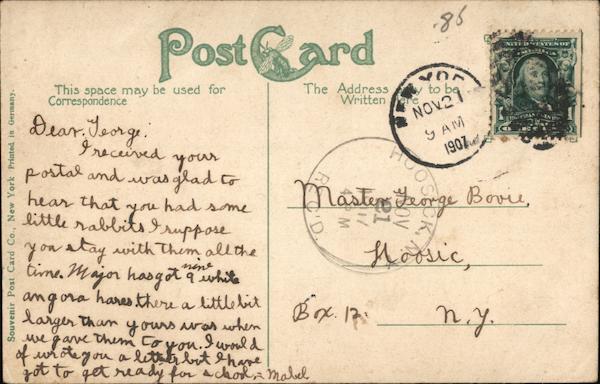 .86
Post Card
This space may be used for
Correspondence
The Address only to be
Written Here
NEW YORK
NOV 21
9 AM
1907
UNITED STATES OF
HOOSICK, N.Y.
NOV
21
REC'D.
Souvenir Post Card Co., New York Printed in Germany.
Dear George:
I received your
postal and was glad to
hear that you had some
little rabbits I suppose
you stay with them all the
time. Major has got 9 nine white
angora hares there a little bit
larger than yours was when
we gave them to you. I would
of wrote you a letter but I have
got to get ready for school - Mabel
Master George Bovie,
Hoosic,
Box. 12.
N.Y.